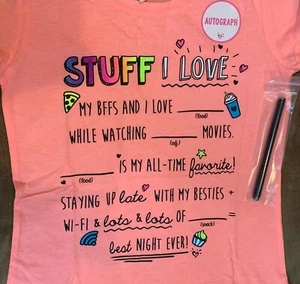 AUTOGRAPH
STUFF I LOVE
MY BFFS AND I LOVE ________
(food)
WHILE WATCHING ________ MOVIES.
(adj.)
________ IS MY ALL-TIME favorite!
(food)
STAYING UP late WITH MY BESTIES +
WI-FI & lots & lots OF ________ =
(snack)
best NIGHT EVER!